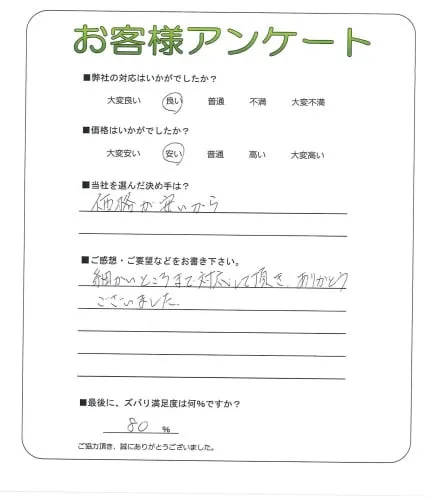 お客様アンケート
■弊社の対応はいかがでしたか？
大変良い 良い 普通 不満 大変不満
■価格はいかがでしたか？
大変安い 安い 普通 高い 大変高い
■当社を選んだ決め手は？
価格が安いから
■ご感想・ご要望などをお書き下さい。
細かいところまで対応して頂き、ありがとう
ございました。
■最後に、ズバリ満足度は何％ですか？
80 ％
ご協力頂き、誠にありがとうございました。